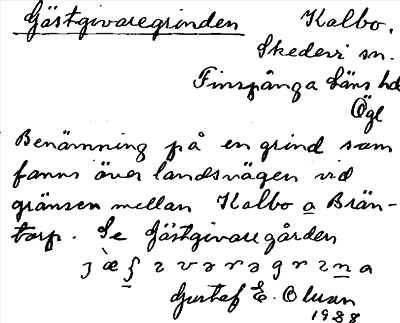 Gästgivaregrinden
Kalbo.
Skedevi sn.
Finspånga läns hd
Ögl
Benämning på en grind som
fanns över landsvägen vid
gränsen mellan Kalbo o Brän-
torp. Se Gästgivaregården
Gustaf E. Olsson
1938